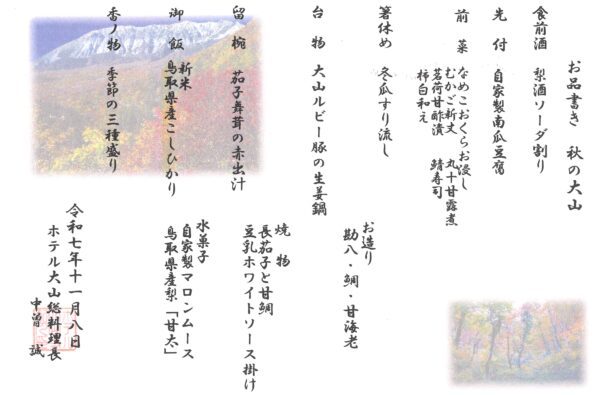 お品書き 秋の大山
食前酒 梨酒ソーダ割り
先付 自家製南瓜豆腐
前菜 なめこおくらお浸し
むかご新丈 丸十甘露煮
茗荷甘酢漬 鯖寿司
柿白和え
お造り
勘八・鯛・甘海老
箸休め 冬瓜すり流し
焼物
長茄子と甘鯛
豆乳ホワイトソース掛け
台物 大山ルビー豚の生姜鍋
留椀 茄子舞茸の赤出汁
御飯 新米
鳥取県産こしひかり
水菓子
自家製マロンムース
鳥取県産梨「甘太」
香ノ物 季節の三種盛り
令和七年十一月八日
ホテル大山総料理長
中曽 誠